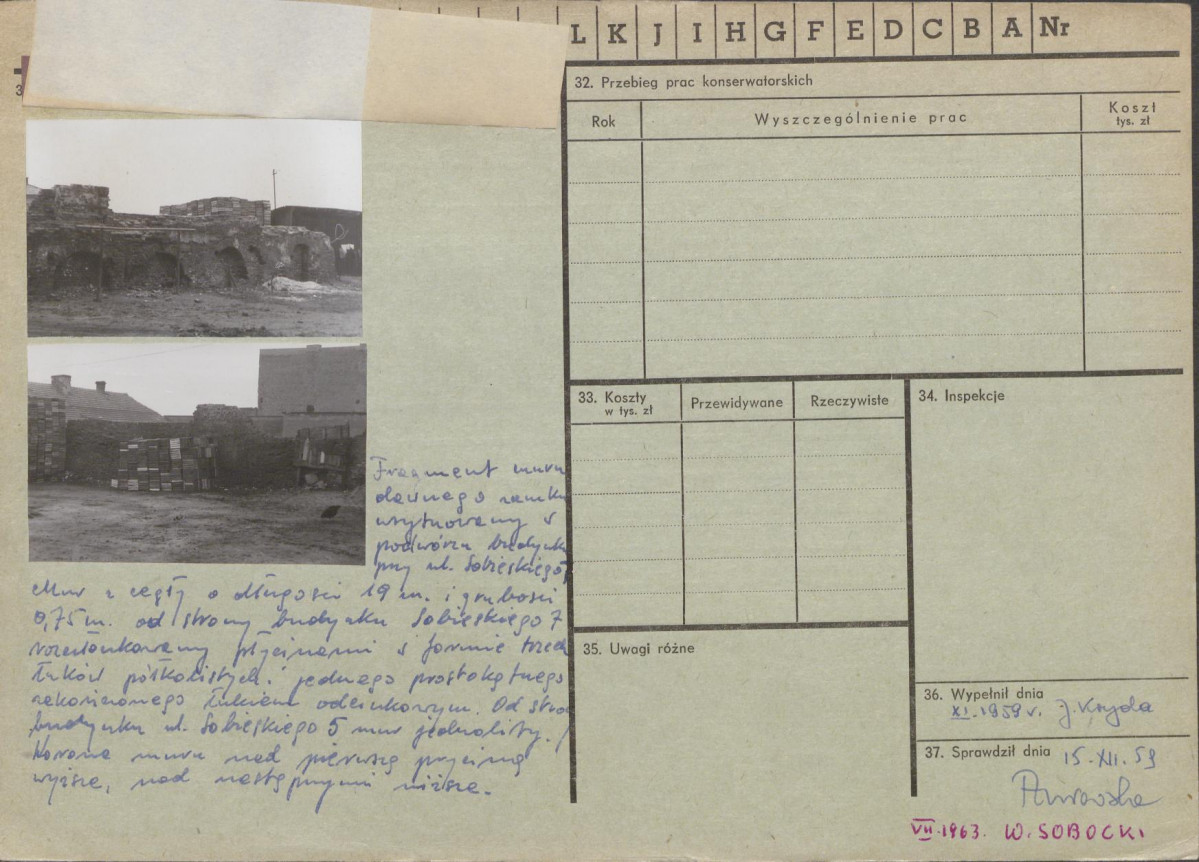 L K J I H G F E D C B A Nr
32. Przebieg prac konserwatorskich
Rok
Wyszczególnienie prac
Koszt
tys. zł
33. Koszty
w tys. zł
Przewidywane
Rzeczywiste
34. Inspekcje
35. Uwagi różne
36. Wypełnił dnia
XI. 1959 r. J. Kryda
37. Sprawdził dnia
15. XII. 59
VII. 1963. W. SOBOCKI
Fragment muru
dawnego zamku
usytuowany w
podwórzu budynku
przy ul. Sobieskiego
Mur z cegły o długości 19 m. i grubości
0,75 m. od strony budynku Sobieskiego 7
rozczłonkowany płycinami w formie trzech
łuków półkolistych i jednego prostokątnego
zakończonego łukiem odcinkowym. Od
budynku ul. Sobieskiego 5 mur jednolity.
Korona muru nad pierwszą
wyższa, nad następnymi niższa.